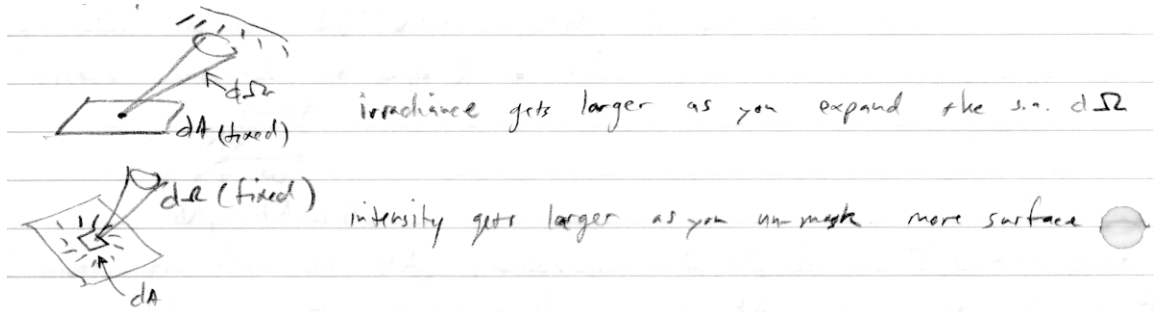 dΩ
irradiance gets larger as you expand the s.a. dΩ
dA (fixed)
dΩ (fixed)
intensity gets larger as you un-mask more surface
dA